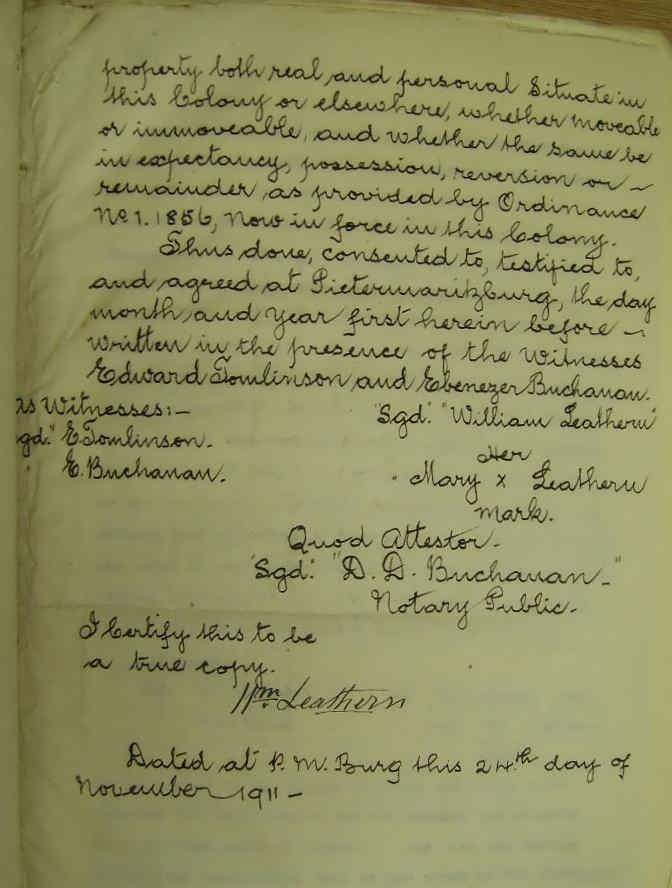 property both real and personal Situate in
this Colony or elsewhere, whether moveable
or immoveable, and whether the same be
in expectancy, possession, reversion or ~
remainder as provided by Ordinance
No 1. 1856, Now in force in this Colony.
Thus done, consented to, testified to,
and agreed at Pietermaritzburg, the day
month and Year first herein before ~
written in the presence of the Witnesses
Edward Tomlinson and Ebenezer Buchanan.
as Witnesses:-
gd." E Tomlinson.
E. Buchanan.
"Sgd." "William Leathern"
Her
Mary x Leathern
mark.
Quod Attestor.
"Sgd." "D. D. Buchanan-"
Notary Public.
I Certify this to be
a true copy.
Wm. Leathern
Dated at P. M. Burg this 24th day of
November 1911 -